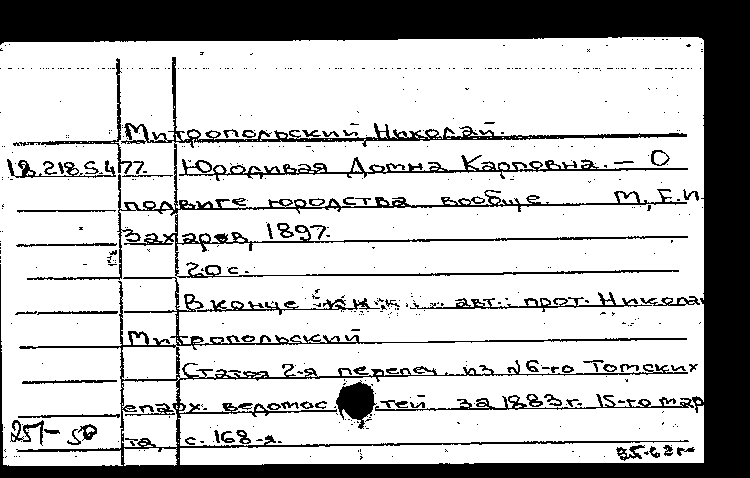 Митропольский, Николай.
18.218.5.477. Юродивая Домна Карповна. — О
подвиге юродства вообще. М., Е.И.
Захаров, 1897.
20 с.
В конце авт.: прот. Никола
Митропольский
Статья 2-я перепеч. из № 6-го Томских
епарх. ведомостей за 1883 г. 15-го мар
та, с. 168-я.
251-50